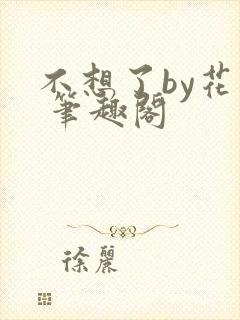 不想了by花
筆趣閣
徐麗